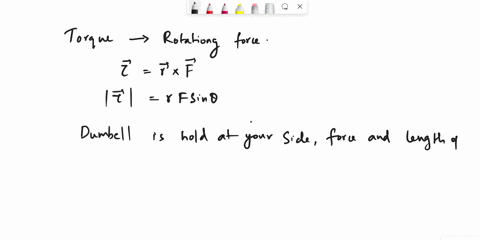 Torque → Rotationg force.
τ⃗ = r⃗ × F⃗
|τ⃗| = r F sinθ
Dumbell is hold at your side, force and length of